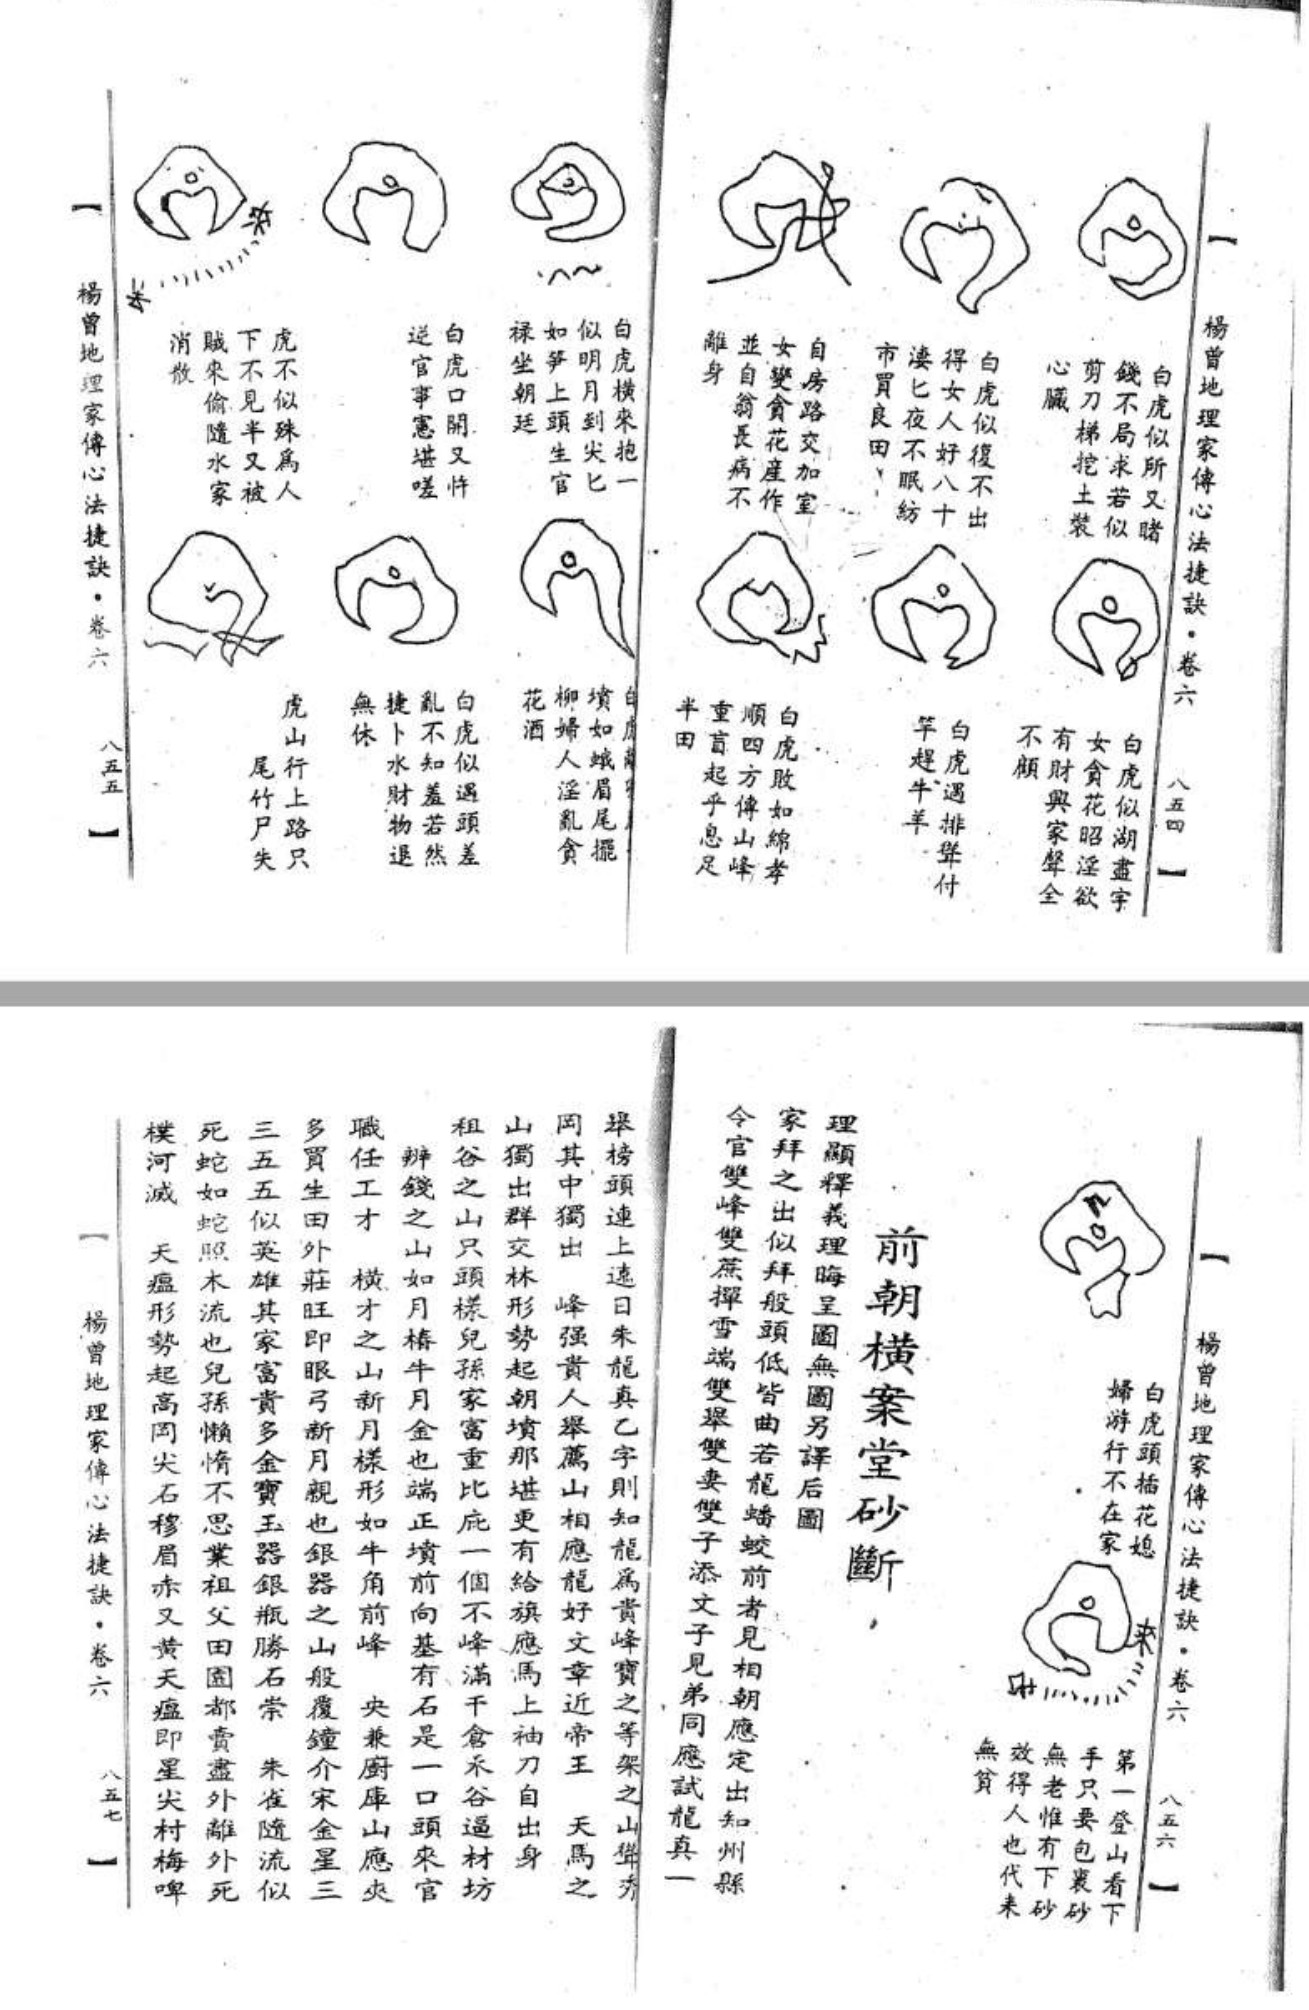 【
楊曾地理家傳心法捷訣・卷六
八五四
】
白虎似所又睹
錢不局求若似
剪刀梯挖土裝
心臟
白虎似復不出
得女人好八十
淒匕夜不眠紡
市買良田
自房路交加室
女變貪花産作
並自翁長病不
離身
白虎似湖盡字
女貪花昭淫欲
有財興家聲全
不顧
白虎遇排聳付
竿趕牛羊
白虎敗如綿孝
順四方傳山峰
重盲起乎息足
半田
白虎橫來抱一
似明月到尖匕
如笋上頭生官
祿坐朝廷
白虎口開又忤
逆官事憲堪嗟
虎不似殊爲人
下不見半又被
賊來偷隨水家
消散
白虎
墳如蛾眉尾擺
柳婦人淫亂貪
花酒
白虎似遇頭差
亂不知羞若然
捷卜水財物退
無休
虎山行上路只
尾竹尸失
【
楊曾地理家傳心法捷訣・卷六
八五五
】
【
楊曾地理家傳心法捷訣・卷六
八五六
】
白虎頭插花媳
婦游行不在家
第一登山看下
手只要包裹砂
無老惟有下砂
效得人也代来
無貧
前朝橫案堂砂斷
理顯釋義理晦呈圖無圖另譯后圖
家拜之出似拜般頭低皆曲若龍蟠蛟前者見相朝應定出知州縣
令官雙峰雙蔗撣雪端雙舉雙妻雙子添文子見弟同應試龍真一
舉榜頭連上遠日朱龍真乙字則知龍爲貴峰寶之等架之山聳秀
岡其中獨出　峰强貴人舉薦山相應龍好文章近帝王　天馬之
山獨出群交林形勢起朝墳那堪更有給旗應馬上袖刀自出身
祖谷之山只頭樣兒孫家富重比庇一個不峰滿千倉禾谷逼材坊
辨錢之山如月樁牛月金也端正墳前向基有石是一口頭來官
職任工才　橫才之山新月樣形如牛角前峰　央兼廚庫山應夾
多買生田外莊旺即眼弓新月親也銀器之山般覆鐘介宋金星三
三五五似英雄其家富貴多金寶玉器銀瓶勝石崇　朱雀隨流似
死蛇如蛇照木流也兒孫懶惰不思業祖父田園都賣盡外離外死
樸河滅　天瘟形勢起高岡尖石穆眉赤又黄天瘟即星尖村梅啤
【
楊曾地理家傳心法捷訣・卷六
八五七
】